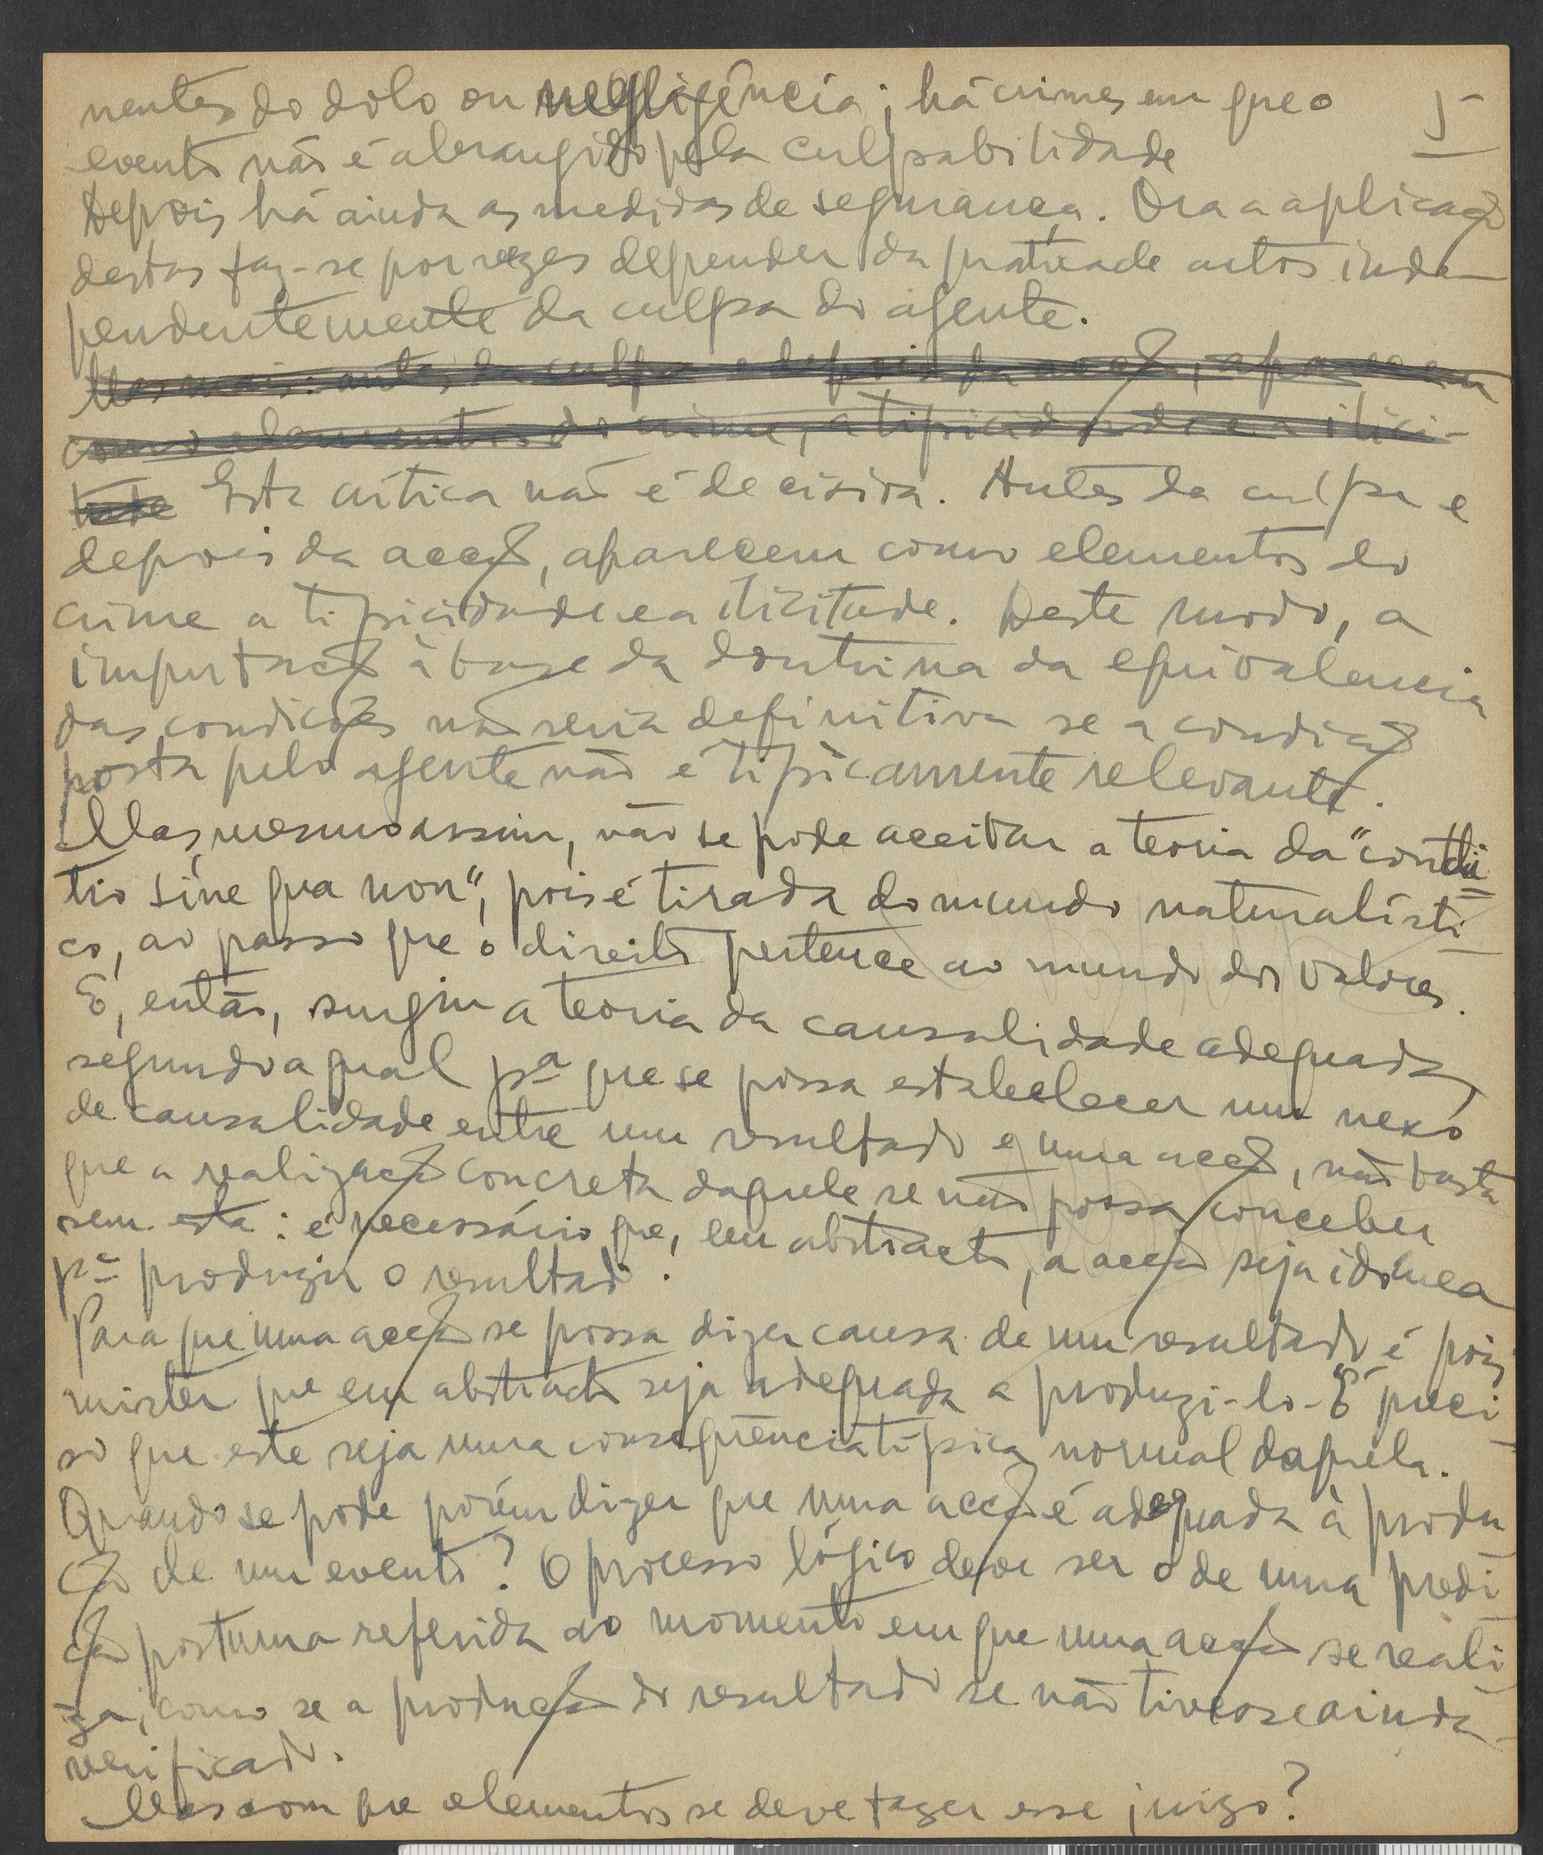 nentes do dolo ou negligência; há crimes em que o 5-
evento não é abrangido pela culpabilidade
Depois há ainda as medidas de segurança. Ora a aplicação
destas faz-se por vezes depender da prática de actos inde-
pendentemente da culpa do agente.
Mas mais: antes da culpa e depois da acção, aparecem
como elementos do crime, a tipicidade e a ilici-
tude Esta crítica não é decisiva. Antes da culpa e
depois da acção, aparecem como elementos do
crime a tipicidade e a ilicitude. Deste modo, a
imputação à base da doutrina da equivalencia
das condições não seria definitiva se a condição
posta pelo agente não é tìpicamente relevante.
Mas, mesmo assim, não se pode aceitar a teoria da "condi-
tio sine qua non", pois é tirada do mundo naturalísti-
co, ao passo que o direito pertence ao mundo dos valores.
E, então, surgiu a teoria da causalidade adequada,
segundo a qual pª que se possa estabelecer um nexo
de causalidade entre um resultado e uma acção, não basta
que a realização concreta daquele se não possa conceber
sem esta: é necessário que, em abstracto, a acção seja idónea
pª produzir o resultado.
Para que uma acção se possa dizer causa de um resultado é pois
mister que em abstracto seja adequada a produzi-lo. É preci-
so que este seja uma consequência típica normal daquela.
Quando se pode porém dizer que uma acção é adequada à produ-
ção de um evento? O processo lógico deve ser o de uma predi-
ção postuma referida ao momento em que uma acção se reali-
za, como se a produção do resultado se não tivesse ainda
verificado.
Mas com que elementos se deve fazer esse juizo?